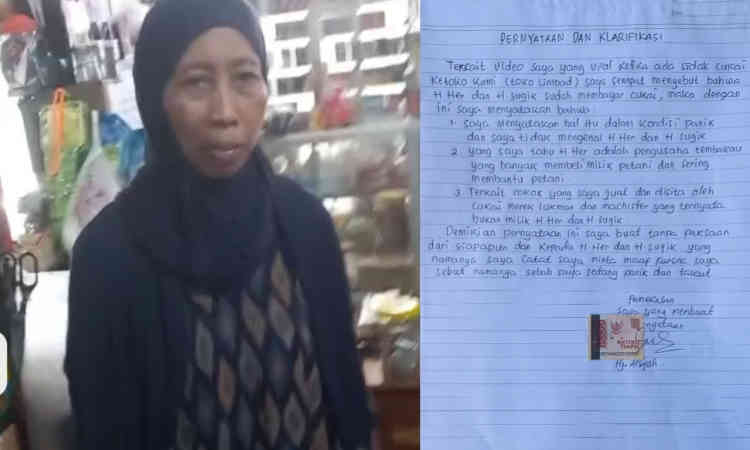 PERNYATAAN DAN KLARIFIKASI
Terkait Video saya yang viral ketika ada sidak cukai
ketoko kami (toko Limbad) saya sempat mengebut bahwa
H Her dan H Sugik sudah membayar cukai, maka dengan
ini saya menyatakan bahwa:
1. Saya menyatakan hal itu dalam kondisi panik
dan saya tidak mengenal H Her dan H Sugik
2. Yang saya tahu H Her adalah pengusaha tembakau
yang banyak membeli milik petani dan sering
membantu petani
3. Terkait rokok yang saya jual dan disita oleh
cukai merek Lukman dan machister yang ternyata
bukan milik H Her dan H Sugik
Demikian pernyataan ini saya buat tanpa paksaan
dari siapapun dan kepada H Her dan H Sugik yang
namanya saya catut saya minta maaf karena saya
sebut namanya sebab saya sedang panik dan takut
Pamekasan
Saya yang membuat